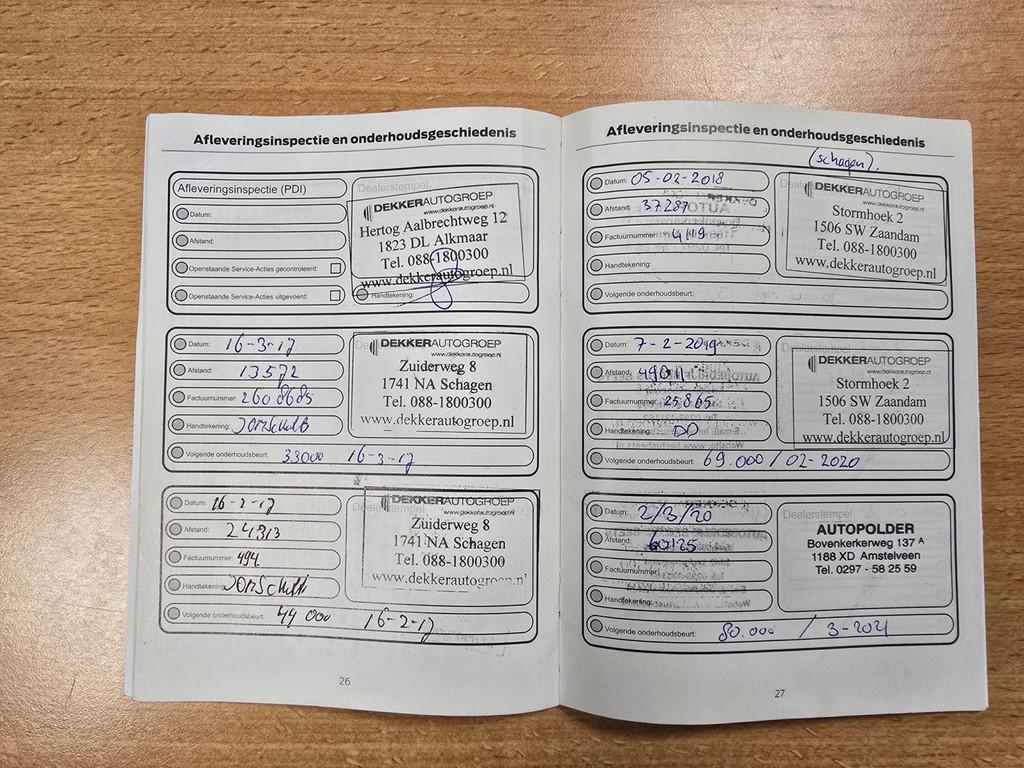 Afleveringsinspectie en onderhoudsgeschiedenis
Afleveringsinspectie (PDI)
Datum:
Afstand:
Openstaande Service-Acties gecontroleerd:
Openstaande Service-Acties uitgevoerd:
Dealerstempel
DEKKERAUTOGROEP
www.dekkerautogroep.nl
Hertog Aalbrechtweg 12
1823 DL Alkmaar
Tel. 088-1800300
www.dekkerautogroep.nl
Handtekening:
Datum: 16-3-17
Afstand: 13572
Factuurnummer: 2608685
Handtekening:
Volgende onderhoudsbeurt: 33000 16-3-17
DEKKERAUTOGROEP
www.dekkerautogroep.nl
Zuiderweg 8
1741 NA Schagen
Tel. 088-1800300
www.dekkerautogroep.nl
Datum: 16-2-17
Afstand: 24313
Factuurnummer: 494
Handtekening:
Volgende onderhoudsbeurt: 44 000 16-2-17
DEKKERAUTOGROEP
www.dekkerautogroep.nl
Zuiderweg 8
1741 NA Schagen
Tel. 088-1800300
www.dekkerautogroep.nl
26
Afleveringsinspectie en onderhoudsgeschiedenis
(schagen).
Datum: 05-02-2018
Afstand: 37287
Factuurnummer: 4119
Handtekening:
Volgende onderhoudsbeurt:
DEKKERAUTOGROEP
www.dekkerautogroep.nl
Stormhoek 2
1506 SW Zaandam
Tel. 088-1800300
www.dekkerautogroep.nl
Datum: 7-2-2019
Afstand: 49011
Factuurnummer: 25865
Handtekening: DD
Volgende onderhoudsbeurt: 69.000 / 02-2020
DEKKERAUTOGROEP
www.dekkerautogroep.nl
Stormhoek 2
1506 SW Zaandam
Tel. 088-1800300
www.dekkerautogroep.nl
Datum: 2/3/20
Afstand: 60125
Factuurnummer:
Handtekening:
Volgende onderhoudsbeurt: 80.000 / 3-2021
Dealerstempel
AUTOPOLDER
Bovenkerkerweg 137 A
1188 XD Amstelveen
Tel. 0297 - 58 25 59
27